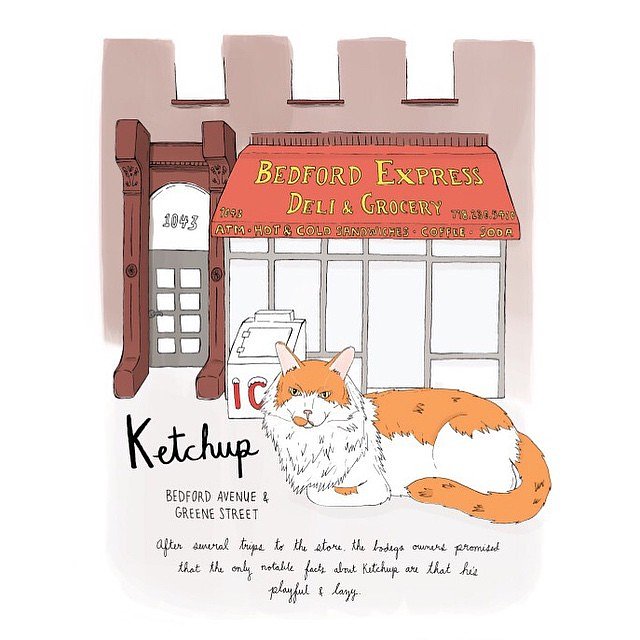 BEDFORD EXPRESS
DELI & GROCERY
1043
1043
718.230.5410
ATM · HOT & COLD SANDWICHES · COFFEE · SODA
IC
Ketchup
BEDFORD AVENUE &
GREENE STREET
After several trips to the store, the bodega owners promised
that the only notable facts about Ketchup are that he's
playful & lazy.